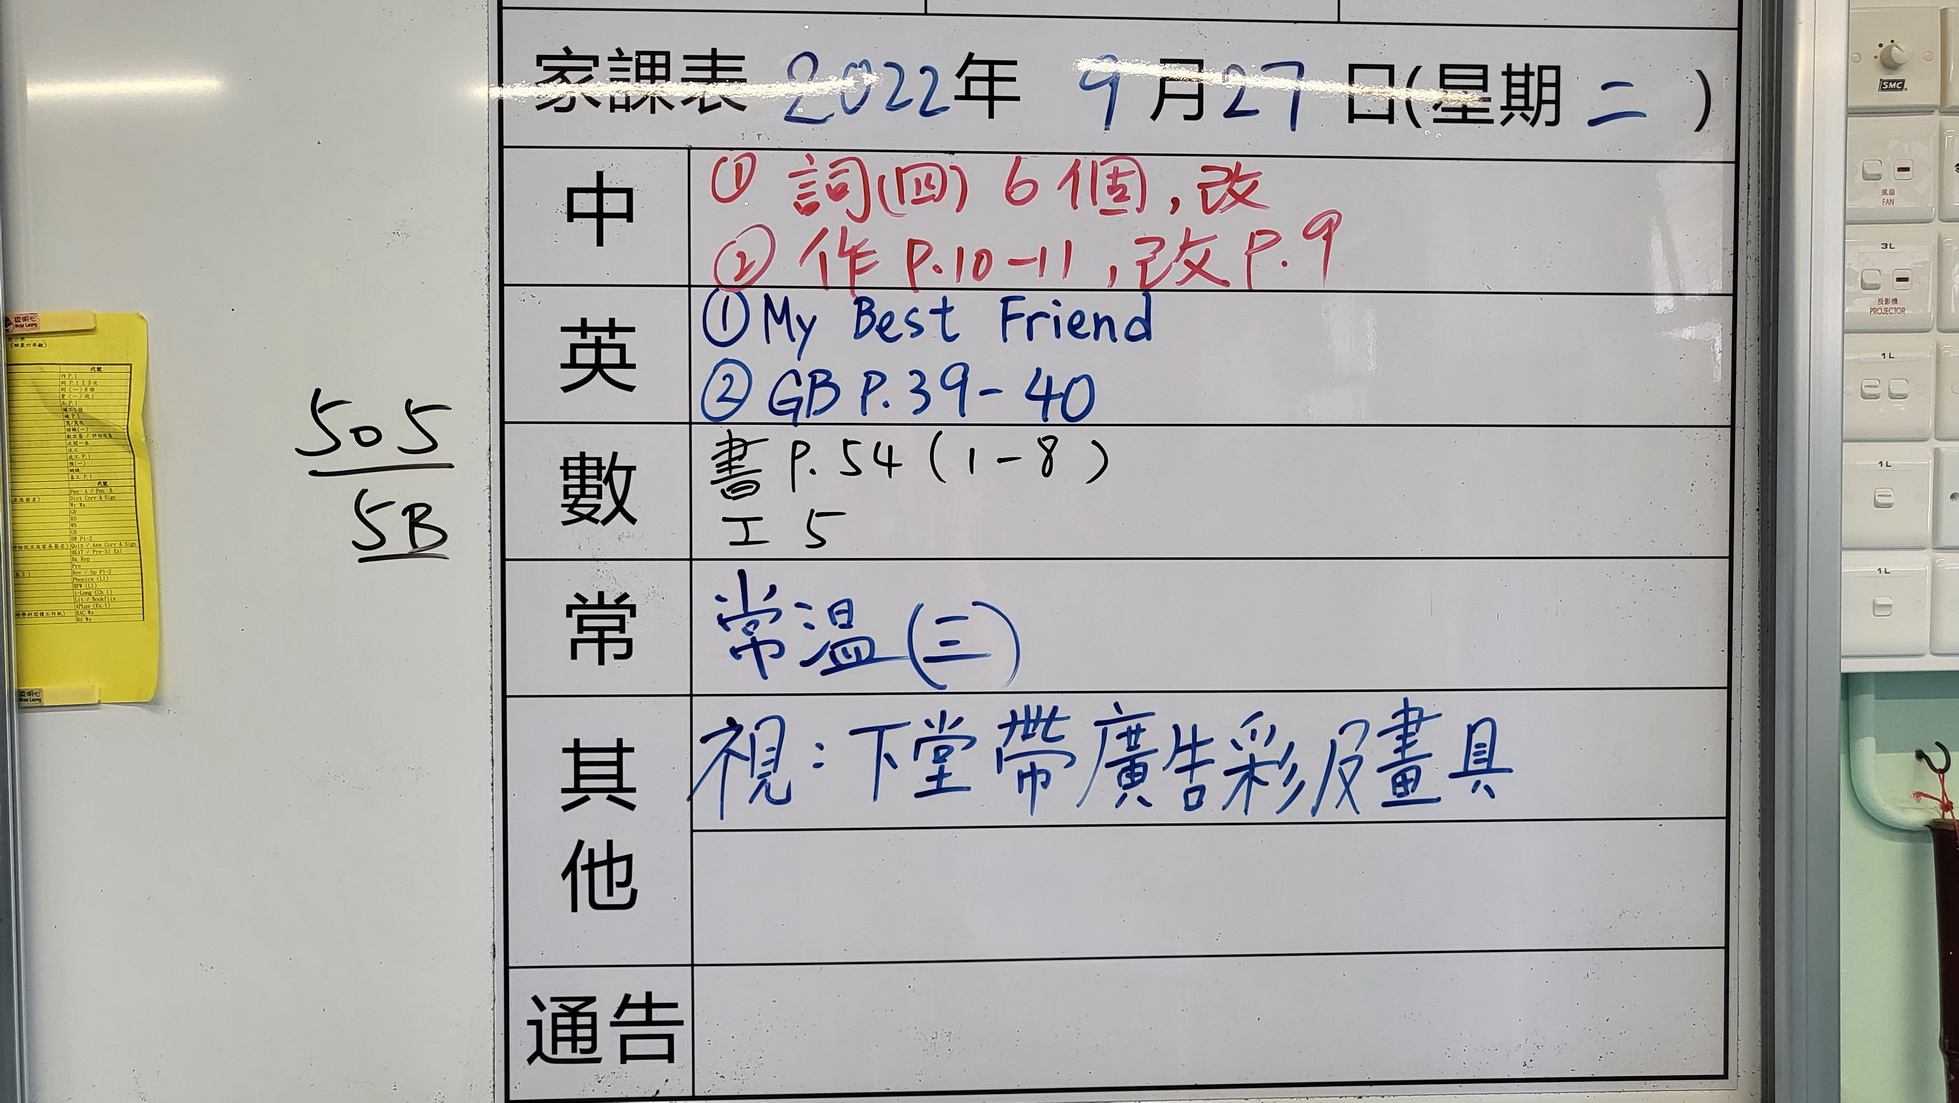 家課表 2022年 9月27日(星期二)
中
① 詞(四) 6個,改
② 作 P.10-11,改 P.9
英
① My Best Friend
② GB P.39-40
數
書 P.54 (1-8)
工 5
常
常溫(三)
其他
視:下堂帶廣告彩及畫具
通告
505
5B
SMC
風扇
FAN
3L
投影機
PROJECTOR
1L
1L
1L